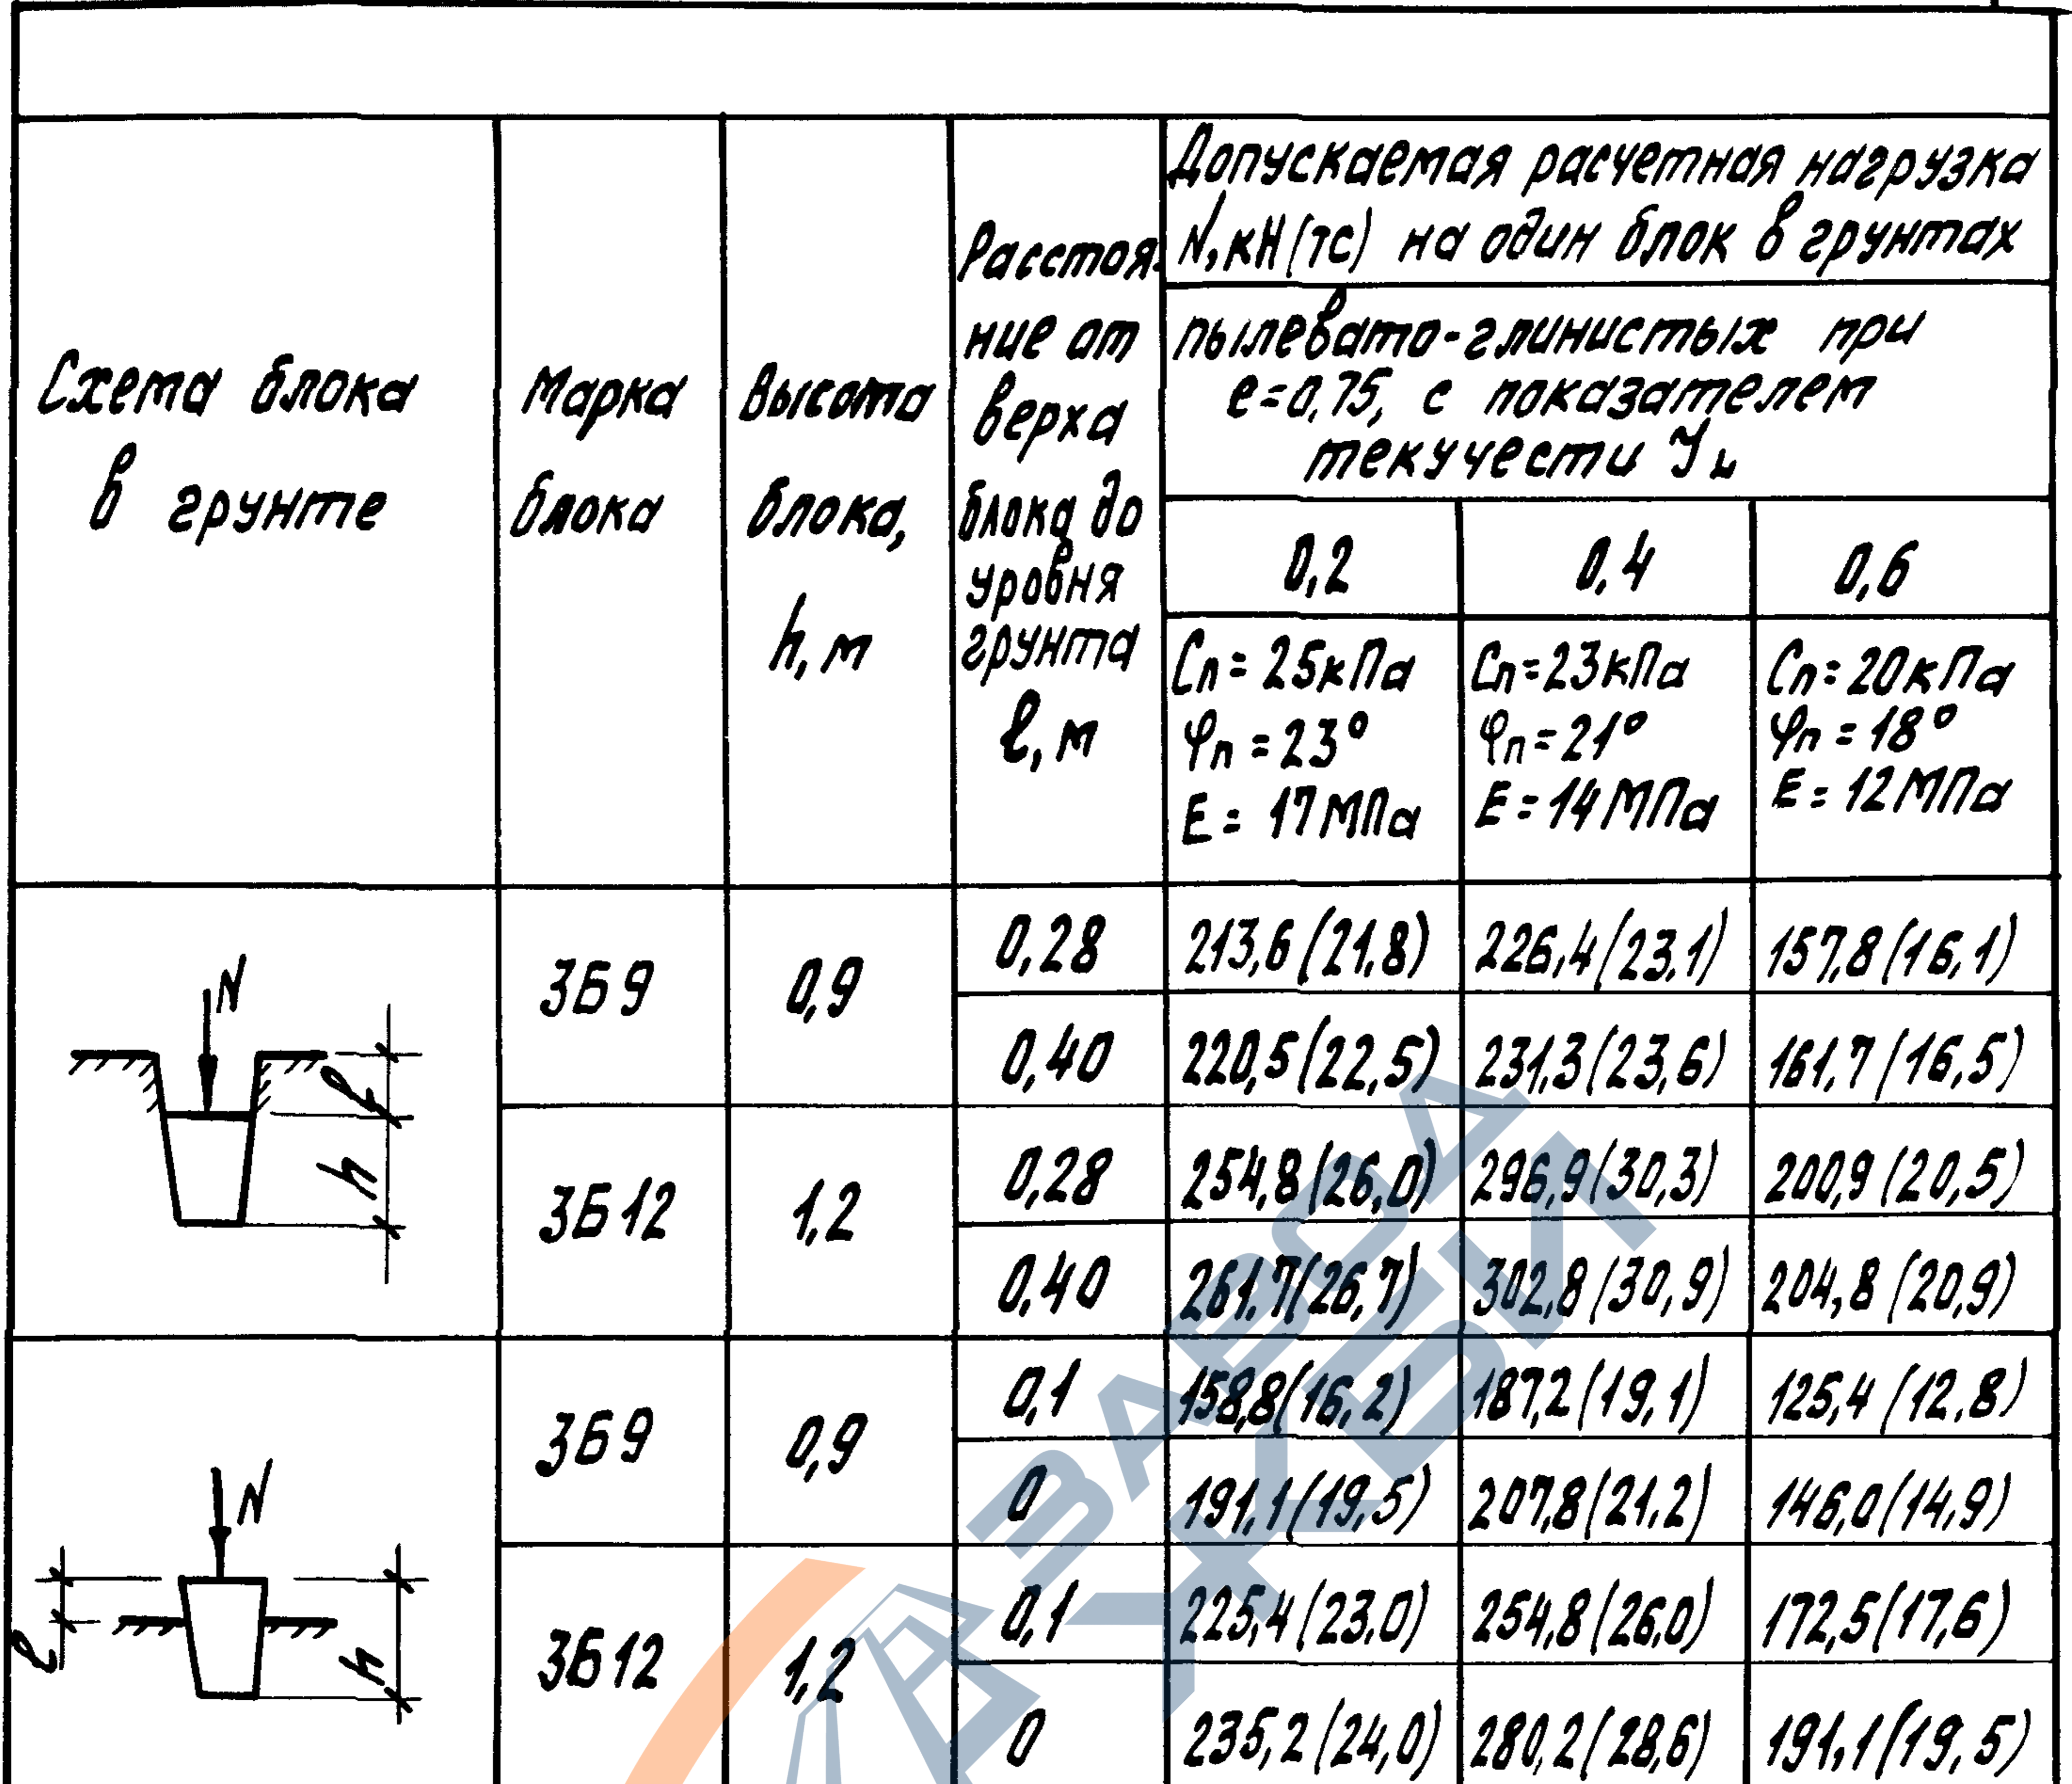 Схема блока
в грунте
Марка
блока
Высота
блока,
h, м
Расстоя-
ние от
верха
блока до
уровня
грунта
ℓ, м
Допускаемая расчетная нагрузка
N, кН (тс) на один блок в грунтах
пылевато-глинистых при
e=0,75, с показателем
текучести I_L
0,2
0,4
0,6
Cп = 25кПа
φп = 23°
E = 17МПа
Cп=23кПа
φп=21°
E=14МПа
Cп=20кПа
φп=18°
E=12МПа
N
ℓ
h
3Б9
0,9
0,28
213,6 (21,8)
226,4 (23,1)
157,8 (16,1)
0,40
220,5 (22,5)
231,3 (23,6)
161,7 (16,5)
3Б12
1,2
0,28
254,8 (26,0)
296,9 (30,3)
200,9 (20,5)
0,40
261,7 (26,7)
302,8 (30,9)
204,8 (20,9)
N
ℓ
h
3Б9
0,9
0,1
158,8 (16,2)
187,2 (19,1)
125,4 (12,8)
0
191,1 (19,5)
207,8 (21,2)
146,0 (14,9)
3Б12
1,2
0,1
225,4 (23,0)
254,8 (26,0)
172,5 (17,6)
0
235,2 (24,0)
280,2 (28,6)
191,1 (19,5)
ЗАВОД
ЖБИ